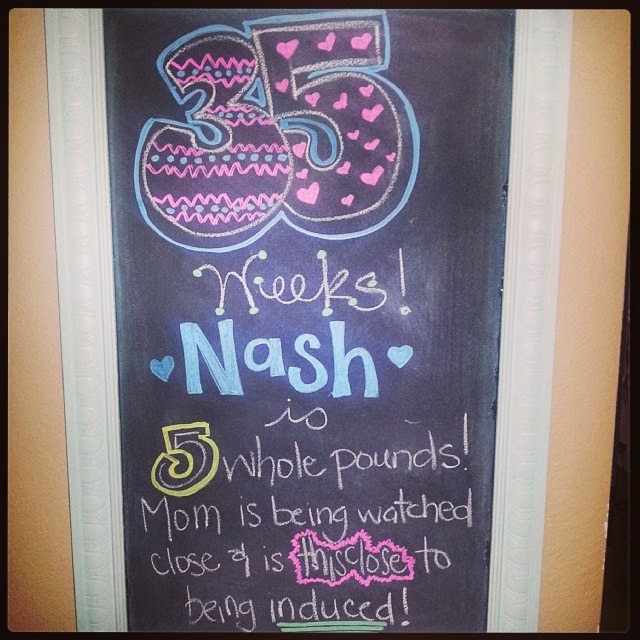 35
Weeks!
Nash
is
5 whole pounds!
Mom is being watched
close & is thisclose to
being induced!